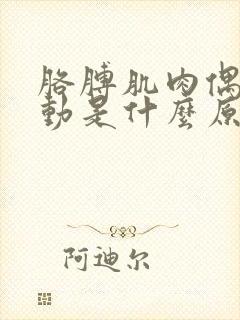 胳膊肌肉偶
動是什麼原
阿迪尔